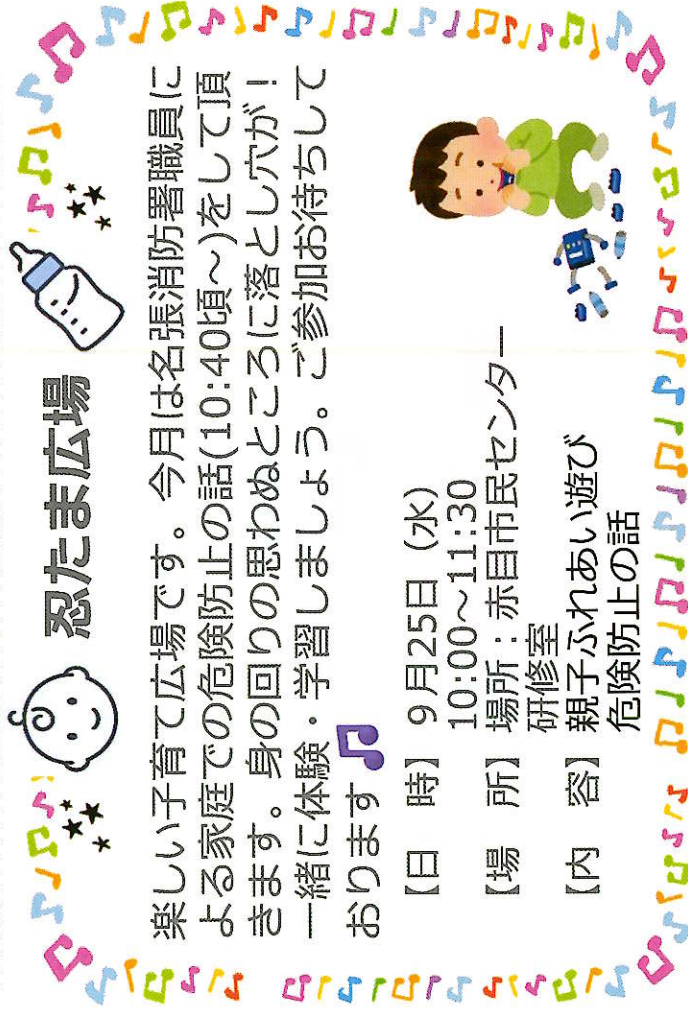 忍たま広場
楽しい子育て広場です。今月は名張消防署職員に
よる家庭での危険防止の話(10:40頃～)をして頂
きます。身の回りの思わぬところに落とし穴が！
一緒に体験・学習しましょう。ご参加お待ちして
おります
【日　時】９月25日（水）
10:00～11:30
【場　所】場所：赤目市民センター
研修室
【内　容】親子ふれあい遊び
危険防止の話